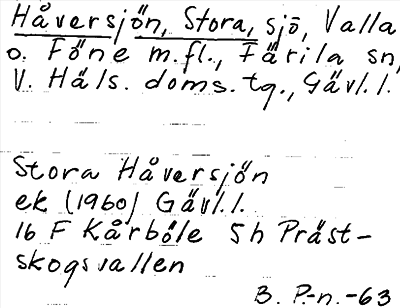 Håversjön, Stora, sjö, Valla
o. Föne m.fl., Färila sn,
V. Häls. doms.tg., Gävl.l.
Stora Håversjön
ek (1960) Gävl.l.
16 F Kårböle 5h Präst-
skogsvallen
B. P.-n.-63